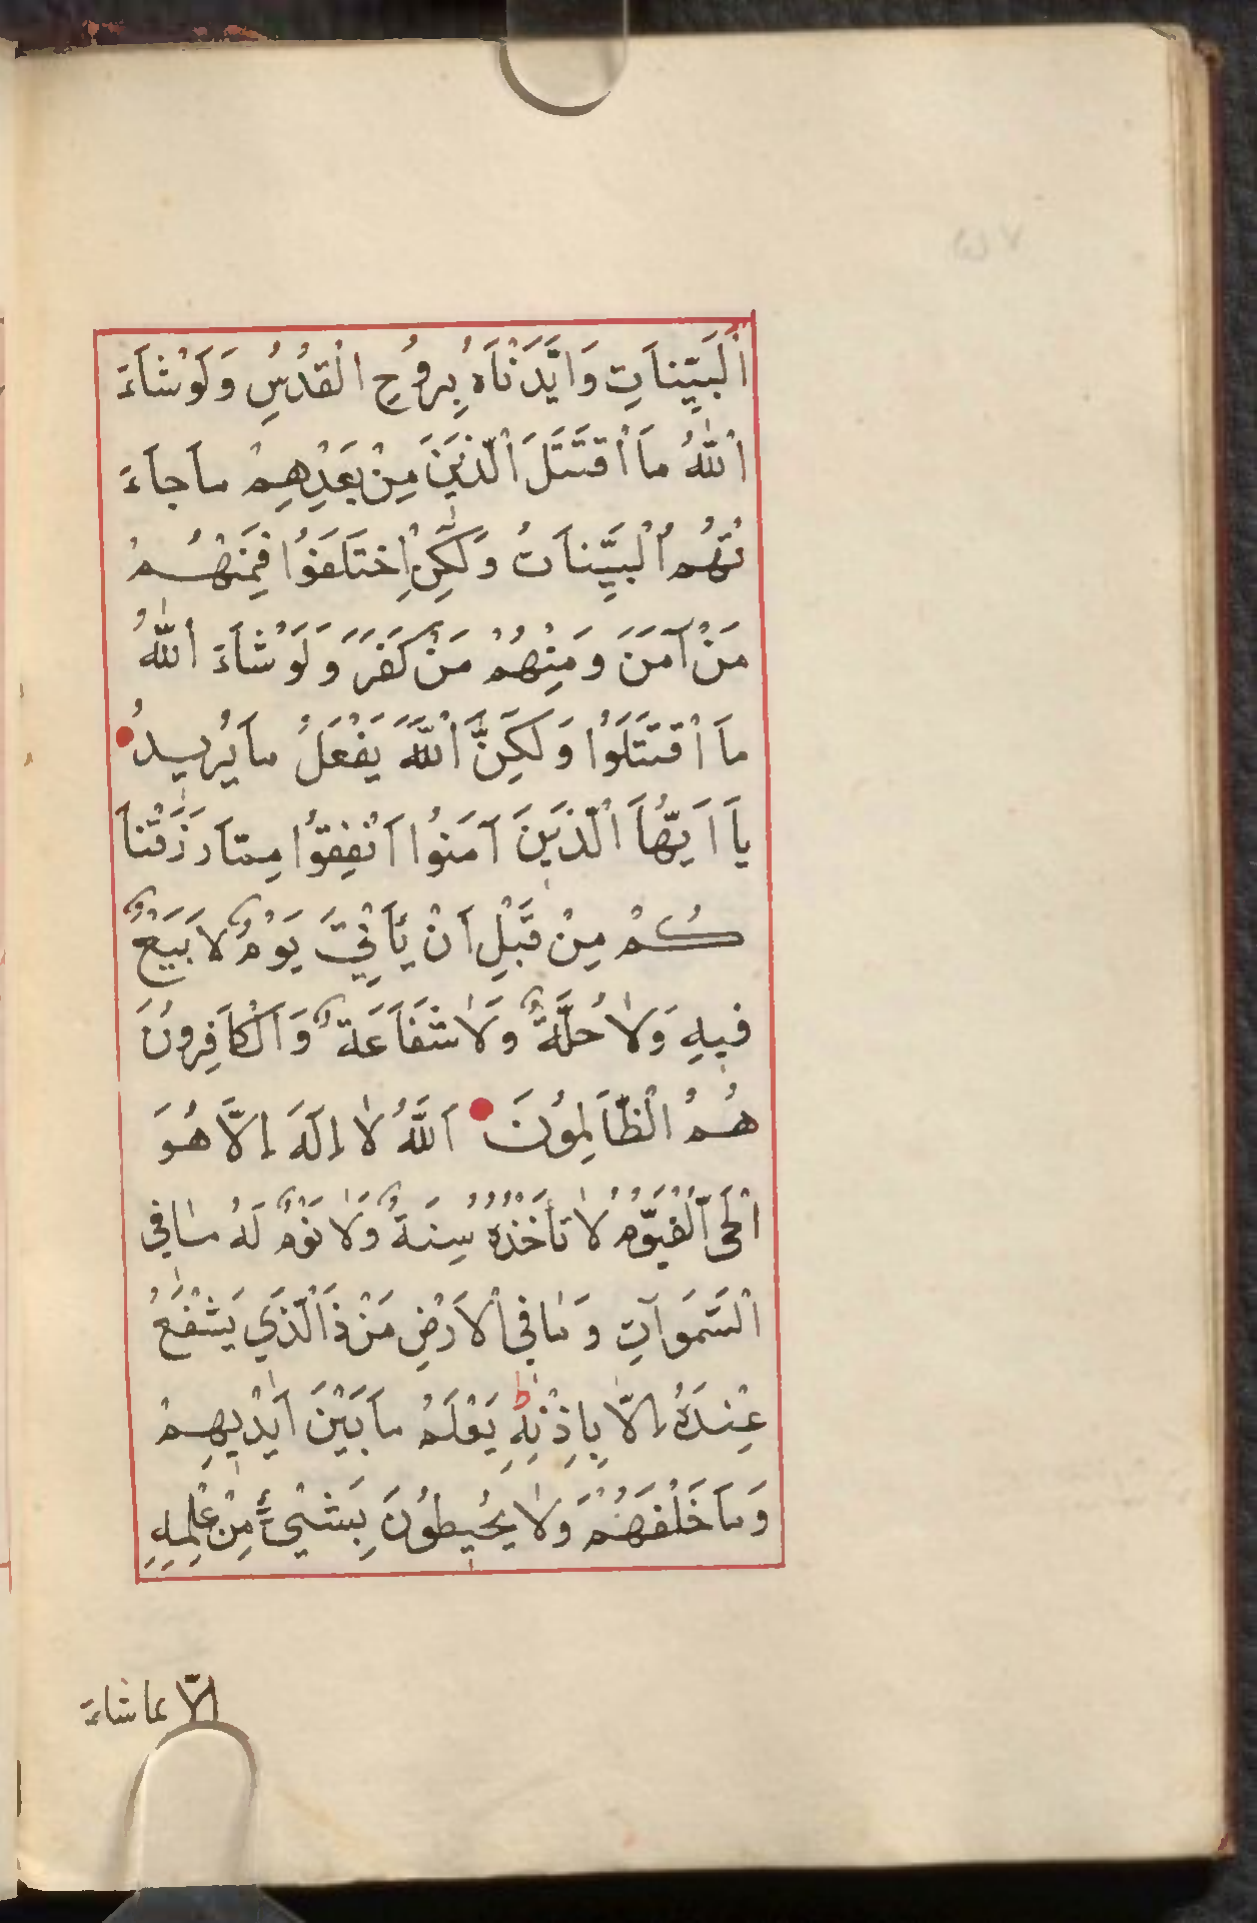 اَلْبَيِّنَاتِ وَاَيَّدْنَاهُ بِرُوحِ الْقُدُسِ وَلَوْشَاءَ
اللّٰهُ مَا اقْتَتَلَ الَّذِينَ مِنْ بَعْدِهِمْ مَاجَاءَ
تْهُمُ الْبَيِّنَاتُ وَلٰكِنِ اخْتَلَفُوا فَمِنْهُمْ
مَنْ آمَنَ وَمِنْهُمْ مَنْ كَفَرَ وَلَوْشَاءَ اللّٰهُ
مَا اقْتَتَلُوا وَلٰكِنَّ اللّٰهَ يَفْعَلُ مَايُرِيدُ
يَا اَيُّهَا الَّذِينَ آمَنُوا اَنْفِقُوا مِمَّا رَزَقْنَا
كُمْ مِنْ قَبْلِ اَنْ يَأْتِيَ يَوْمٌ لَا بَيْعٌ
فِيهِ وَلَا خُلَّةٌ وَلَا شَفَاعَةٌ وَالْكَافِرُونَ
هُمُ الظَّالِمُونَ اَللّٰهُ لَا اِلَهَ اِلَّا هُوَ
الْحَيُّ الْقَيُّومُ لَا تَأْخُذُهُ سِنَةٌ وَلَا نَوْمٌ لَهُ مَا فِي
السَّمَوَاتِ وَمَا فِي الْاَرْضِ مَنْ ذَا الَّذِي يَشْفَعُ
عِنْدَهُ اِلَّا بِاِذْنِهِ ط يَعْلَمُ مَابَيْنَ اَيْدِيهِمْ
وَمَا خَلْفَهُمْ وَلَا يُحِيطُونَ بِشَيْءٍ مِنْ عِلْمِهِ
اِلَّا بِمَا شَاءَ